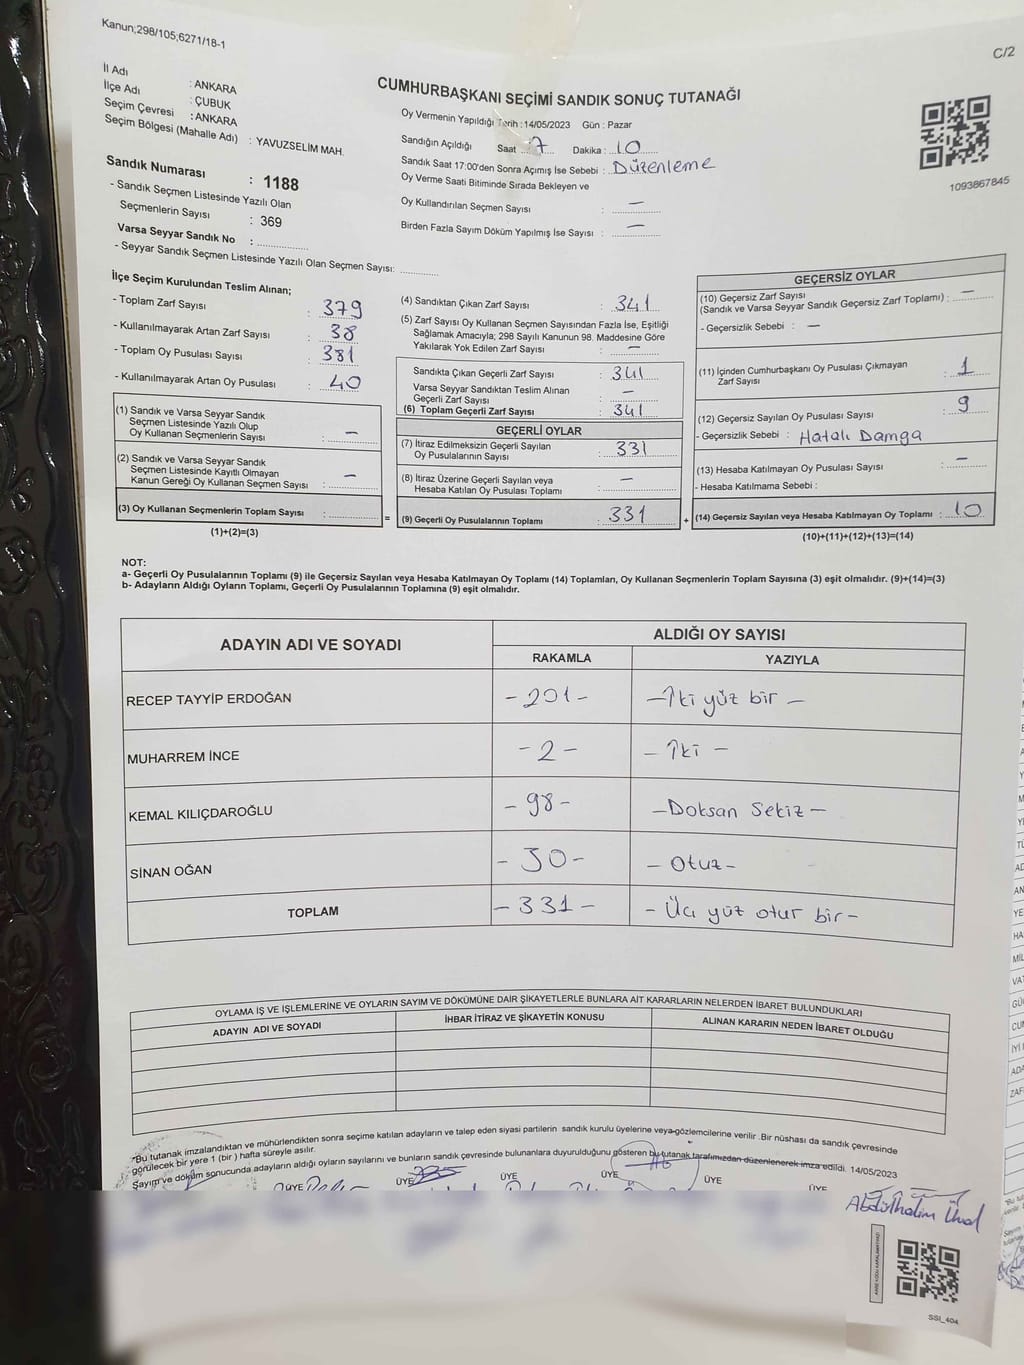 Kanun;298/105;6271/18-1
C/2
İl Adı : ANKARA
İlçe Adı : ÇUBUK
Seçim Çevresi : ANKARA
Seçim Bölgesi (Mahalle Adı) : YAVUZSELİM MAH.
Sandık Numarası : 1188
- Sandık Seçmen Listesinde Yazılı Olan
Seçmenlerin Sayısı : 369
Varsa Seyyar Sandık No :
- Seyyar Sandık Seçmen Listesinde Yazılı Olan Seçmen Sayısı:
CUMHURBAŞKANI SEÇİMİ SANDIK SONUÇ TUTANAĞI
Oy Vermenin Yapıldığı Tarih :14/05/2023 Gün : Pazar
Sandığın Açıldığı Saat 7 Dakika : 10
Sandık Saat 17:00'den Sonra Açımış İse Sebebi : Düzenleme
Oy Verme Saati Bitiminde Sırada Bekleyen ve
Oy Kullandırılan Seçmen Sayısı : —
Birden Fazla Sayım Döküm Yapılmış İse Sayısı : —
1093867845
İlçe Seçim Kurulundan Teslim Alınan;
- Toplam Zarf Sayısı : 379
- Kullanılmayarak Artan Zarf Sayısı : 38
- Toplam Oy Pusulası Sayısı : 381
- Kullanılmayarak Artan Oy Pusulası : 40
(1) Sandık ve Varsa Seyyar Sandık
Seçmen Listesinde Yazılı Olup
Oy Kullanan Seçmenlerin Sayısı : —
(2) Sandık ve Varsa Seyyar Sandık
Seçmen Listesinde Kayıtlı Olmayan
Kanun Gereği Oy Kullanan Seçmen Sayısı : —
(3) Oy Kullanan Seçmenlerin Toplam Sayısı :
(1)+(2)=(3)
=
(4) Sandıktan Çıkan Zarf Sayısı : 341
(5) Zarf Sayısı Oy Kullanan Seçmen Sayısından Fazla İse, Eşitliği
Sağlamak Amacıyla; 298 Sayılı Kanunun 98. Maddesine Göre
Yakılarak Yok Edilen Zarf Sayısı : —
Sandıkta Çıkan Geçerli Zarf Sayısı : 341
Varsa Seyyar Sandıktan Teslim Alınan
Geçerli Zarf Sayısı : —
(6) Toplam Geçerli Zarf Sayısı : 341
GEÇERLİ OYLAR
(7) İtiraz Edilmeksizin Geçerli Sayılan
Oy Pusulalarının Sayısı : 331
(8) İtiraz Üzerine Geçerli Sayılan veya
Hesaba Katılan Oy Pusulası Toplamı : —
(9) Geçerli Oy Pusulalarının Toplamı : 331
+
GEÇERSİZ OYLAR
(10) Geçersiz Zarf Sayısı
(Sandık ve Varsa Seyyar Sandık Geçersiz Zarf Toplamı) : —
- Geçersizlik Sebebi : —
(11) İçinden Cumhurbaşkanı Oy Pusulası Çıkmayan
Zarf Sayısı : 1
(12) Geçersiz Sayılan Oy Pusulası Sayısı : 9
- Geçersizlik Sebebi : Hatalı Damga
(13) Hesaba Katılmayan Oy Pusulası Sayısı : —
- Hesaba Katılmama Sebebi :
(14) Geçersiz Sayılan veya Hesaba Katılmayan Oy Toplamı : 10
(10)+(11)+(12)+(13)=(14)
NOT:
a- Geçerli Oy Pusulalarının Toplamı (9) ile Geçersiz Sayılan veya Hesaba Katılmayan Oy Toplamı (14) Toplamları, Oy Kullanan Seçmenlerin Toplam Sayısına (3) eşit olmalıdır. (9)+(14)=(3)
b- Adayların Aldığı Oyların Toplamı, Geçerli Oy Pusulalarının Toplamına (9) eşit olmalıdır.
ADAYIN ADI VE SOYADI
ALDIĞI OY SAYISI
RAKAMLA YAZIYLA
RECEP TAYYİP ERDOĞAN -201- -İki yüz bir-
MUHARREM İNCE -2- -İki-
KEMAL KILIÇDAROĞLU -98- -Doksan Sekiz-
SİNAN OĞAN -30- -Otuz-
TOPLAM -331- -Üç yüz otuz bir-
OYLAMA İŞ VE İŞLEMLERİNE VE OYLARIN SAYIM VE DÖKÜMÜNE DAİR ŞİKAYETLERLE BUNLARA AİT KARARLARIN NELERDEN İBARET BULUNDUKLARI
ADAYIN ADI VE SOYADI İHBAR İTİRAZ VE ŞİKAYETİN KONUSU ALINAN KARARIN NEDEN İBARET OLDUĞU
"Bu tutanak imzalandıktan ve mühürlendikten sonra seçime katılan adayların ve talep eden siyasi partilerin sandık kurulu üyelerine veya gözlemcilerine verilir .Bir nüshası da sandık çevresinde
görülecek bir yere 1 (bir ) hafta süreyle asılır.
Sayım ve döküm sonucunda adayların aldığı oyların sayılarını ve bunların sandık çevresinde bulunanlara duyurulduğunu gösteren bu tutanak tarafımızdan düzenlenerek imza edildi. 14/05/2023
ÜYE ÜYE ÜYE ÜYE ÜYE ÜYE
SSI_404